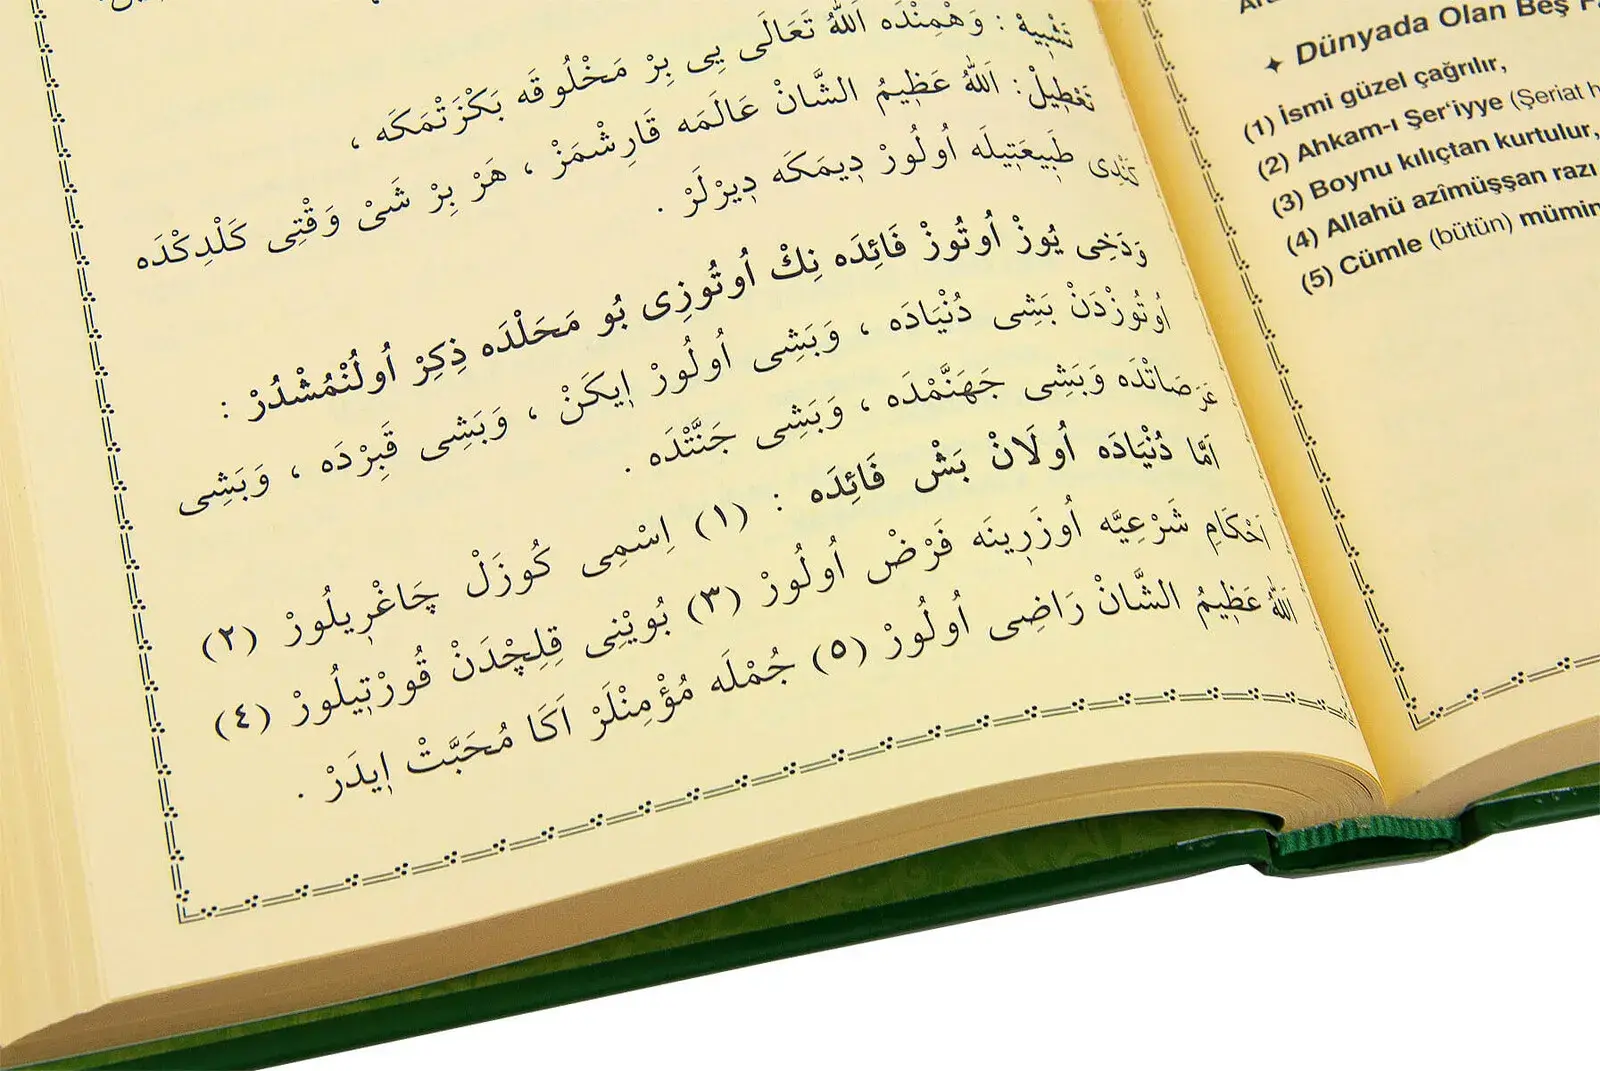 تَشْبِيهْ : وَهْمِنْدَه اَللّٰهُ تَعَالَى يِى بِرْ مَخْلُوقَه بَكْزَتْمَكَه ،
تَعْطِيلْ : اَللّٰهُ عَظِيمُ الشَّانْ عَالَمَه قَارِشْمَزْ ، هَرْ بِرْ شَىْ وَقْتِى كَلْدِكْدَه
كَنْدِى طَبِيعَتِيلَه اُولُورْ دِيمَكَه دِيرْلَرْ .
وَدَخِى يُوزْ اُوتُوزْ فَائِدَه نِكْ اُوتُوزِى بُو مَحَلْدَه ذِكِرْ اُولُنْمُشْدُرْ :
اُوتُوزْدَنْ بَشِى دُنْيَادَه ، وَبَشِى اُولُورْ اِيكَنْ ، وَبَشِى قَبِرْدَه ، وَبَشِى
عَرَصَاتْدَه وَبَشِى جَهَنَّمْدَه ، وَبَشِى جَنَّتْدَه .
اَمَّا دُنْيَادَه اُولَانْ بَشْ فَائِدَه : (١) اِسْمِى كُوزَلْ چَاغْرِيلُورْ (٢)
اَحْكَامِ شَرْعِيَّه اُوزَرِينَه فَرْضْ اُولُورْ (٣) بُويْنِى قِلِچْدَنْ قُورْتِيلُورْ (٤)
اَللّٰهُ عَظِيمُ الشَّانْ رَاضِى اُولُورْ (٥) جُمْلَه مُؤْمِنْلَرْ اَكَا مُحَبَّتْ اِيدَرْ .
Dünyada Olan Beş
(1) İsmi güzel çağrılır,
(2) Ahkam-ı Şer‘iyye (Şeriat
(3) Boynu kılıçtan kurtulur,
(4) Allahü azîmüşşan razı
(5) Cümle (bütün) mümin